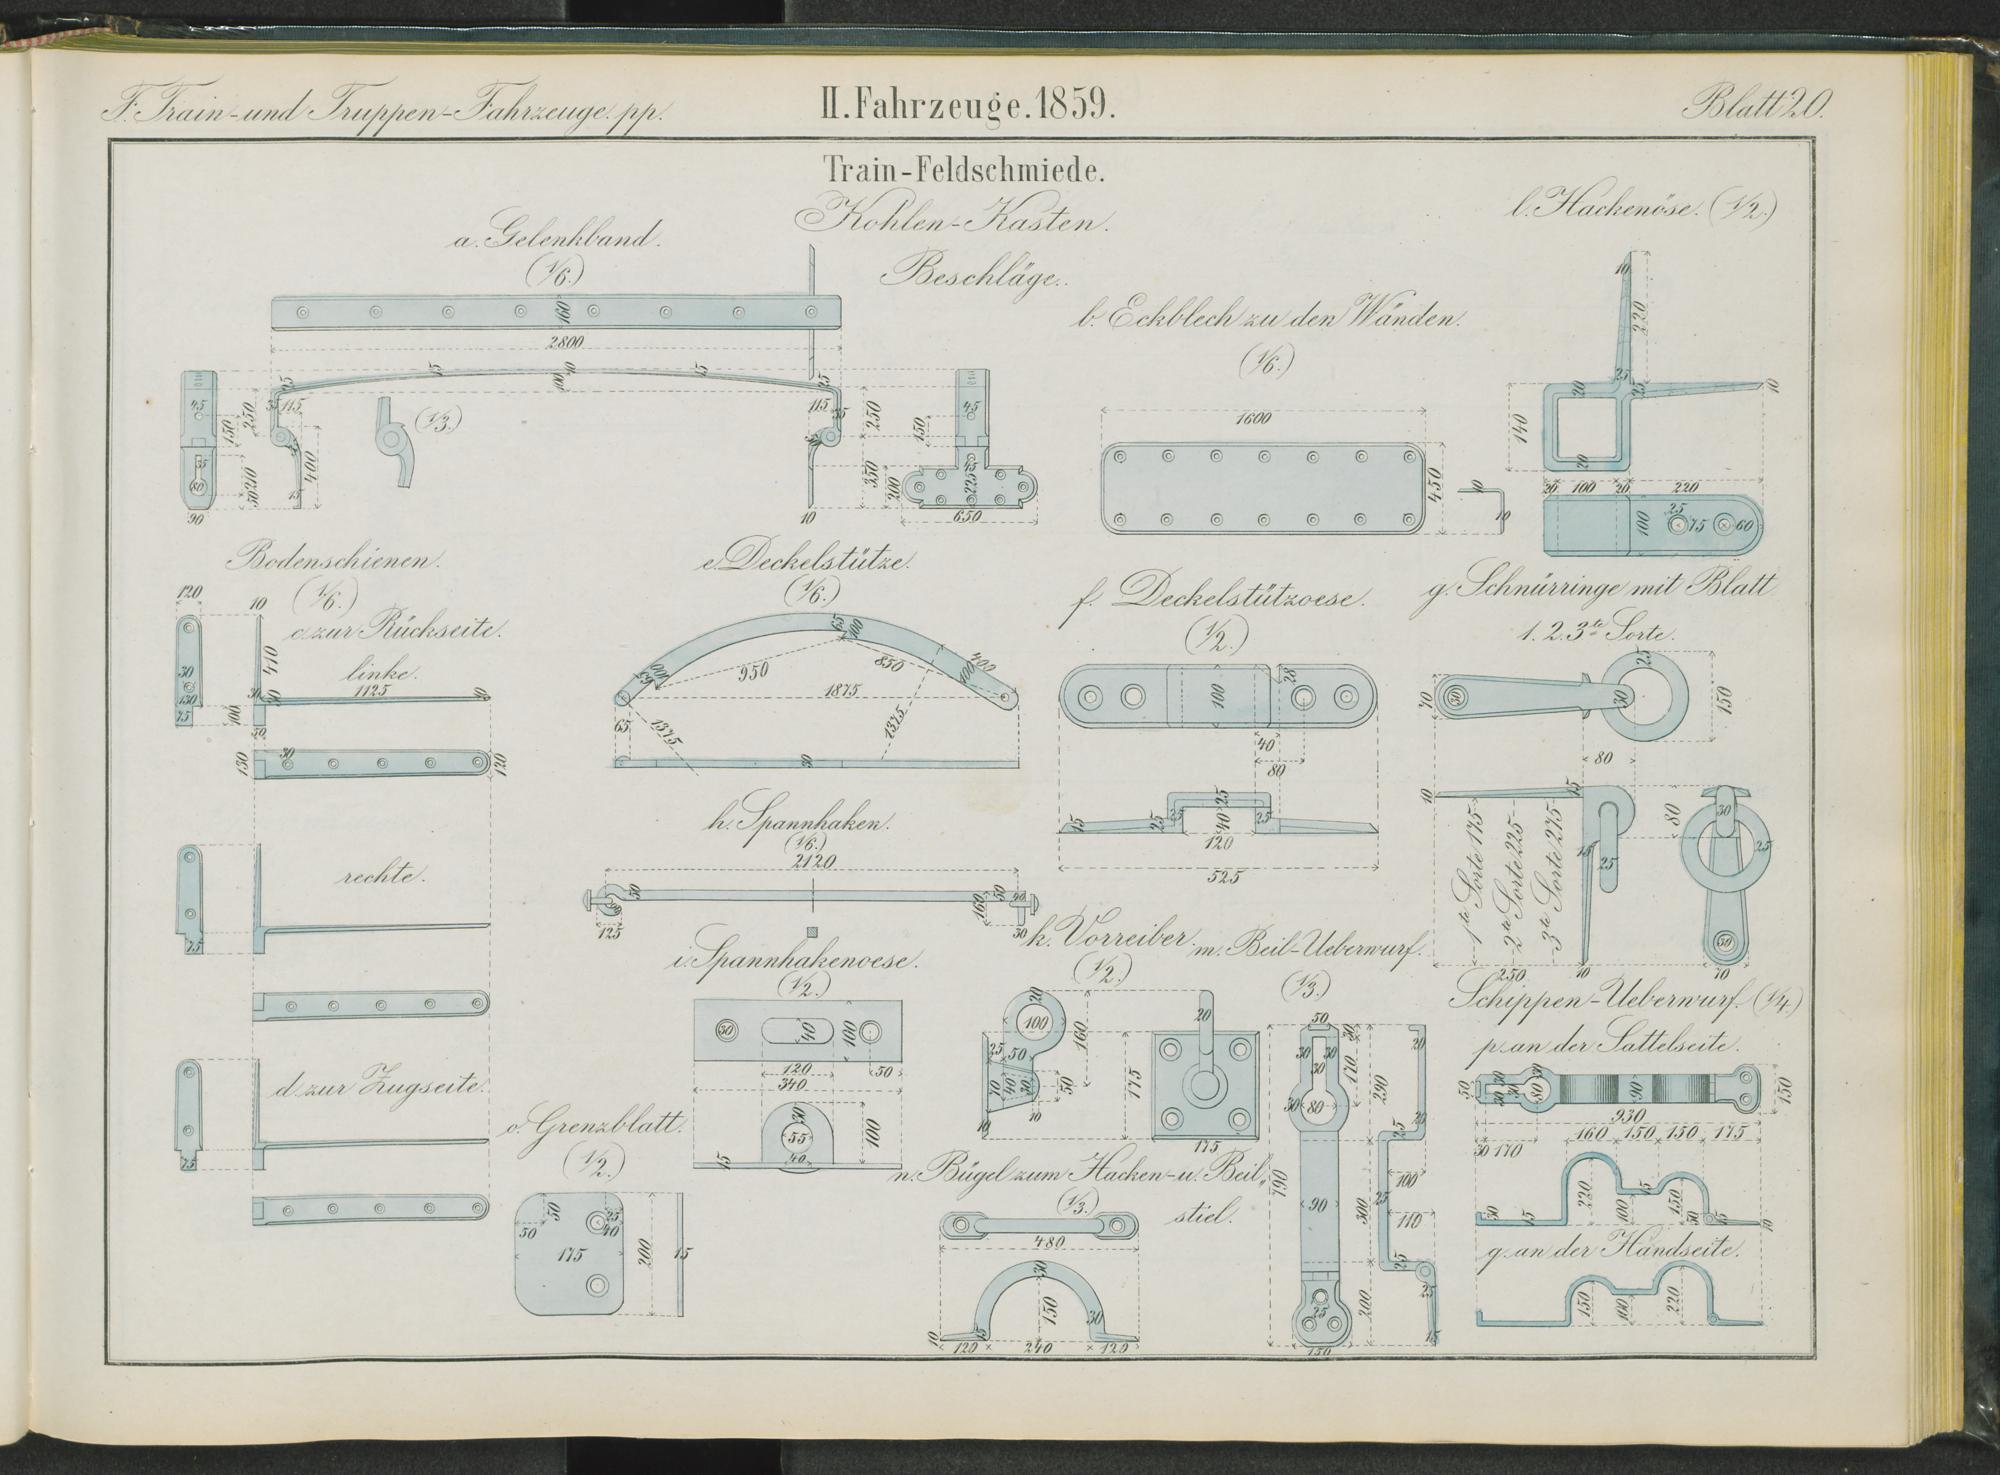 F. Train- und Truppen-Fahrzeuge pp.
II. Fahrzeuge. 1859.
Blatt 20.
Train-Feldschmiede.
Kohlen-Kasten.
Beschläge.
a. Gelenkband.
(1/6.)
160
2800
15 15
25 25
45 115 115 45
150 250 (1/3.) 250 150
35 210 400 350 200 225
80 50 15
90 10 650
b. Eckblech zu den Wänden.
(1/6.)
1600
450
10
10
l. Hackenöse. (1/2.)
10
220
25 25 10
20
140
20
20 100 20 220
100 25 75 60
Bodenschienen.
(1/6.)
120 10
c. zur Rückseite.
linke.
30 410 1125
130
75 100
50
130 30 120
rechte.
75
d. zur Zugseite.
75
e. Deckelstütze.
(1/6.)
65 100
950 850 400
100
1875
65 1375 1375
30
f. Deckelstützoese.
(1/2.)
100 28
40
80
15 25 25 25 25
40
120
525
g. Schnürringe mit Blatt
1. 2. 3te Sorte.
25
70 30 30 150
80
10 15
80 30
15 25 25
1te Sorte 175
2te Sorte 225
3te Sorte 275
30
250 10 70
h. Spannhaken.
(1/6.)
2120
50 50
160
125 30
i. Spannhakenoese.
(1/2.)
30 40 100
120 50
340
30
55 100
15 40
k. Vorreiber.
(1/2.)
20 20
100 160
25 50
70 40 30 50 175
10 10
175
m. Beil-Ueberwurf.
(1/3.)
50
30 30 30 20
30 170 290
30 80 20
25
100
790 90 300 25
110
25
200 25
25
15
150
n. Bügel zum Hacken- u. Beil-
stiel.
(1/3.)
480
30
150 30
10 15
120 240 120
o. Grenzblatt.
(1/2.)
50 25
50 40
175 200 15
Schippen-Ueberwurf. (1/4.)
p. an der Sattelseite.
50 30 30 80 90 150
930
30 170 160 150 150 175
220 100 15 150
30 15 50 15 10
q. an der Handseite.
150 100 220